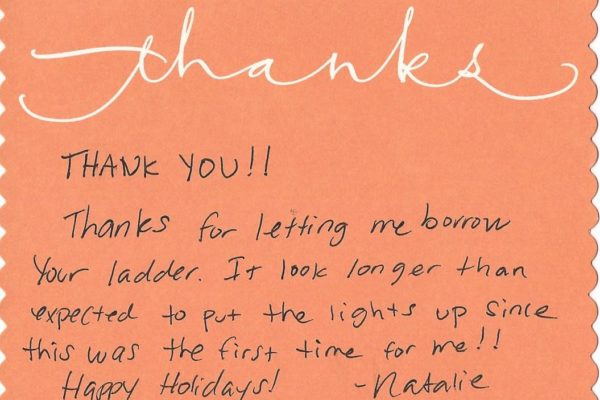 thanks
THANK YOU!!
Thanks for letting me borrow
your ladder. It look longer than
expected to put the lights up since
this was the first time for me!!
Happy Holidays! -Natalie